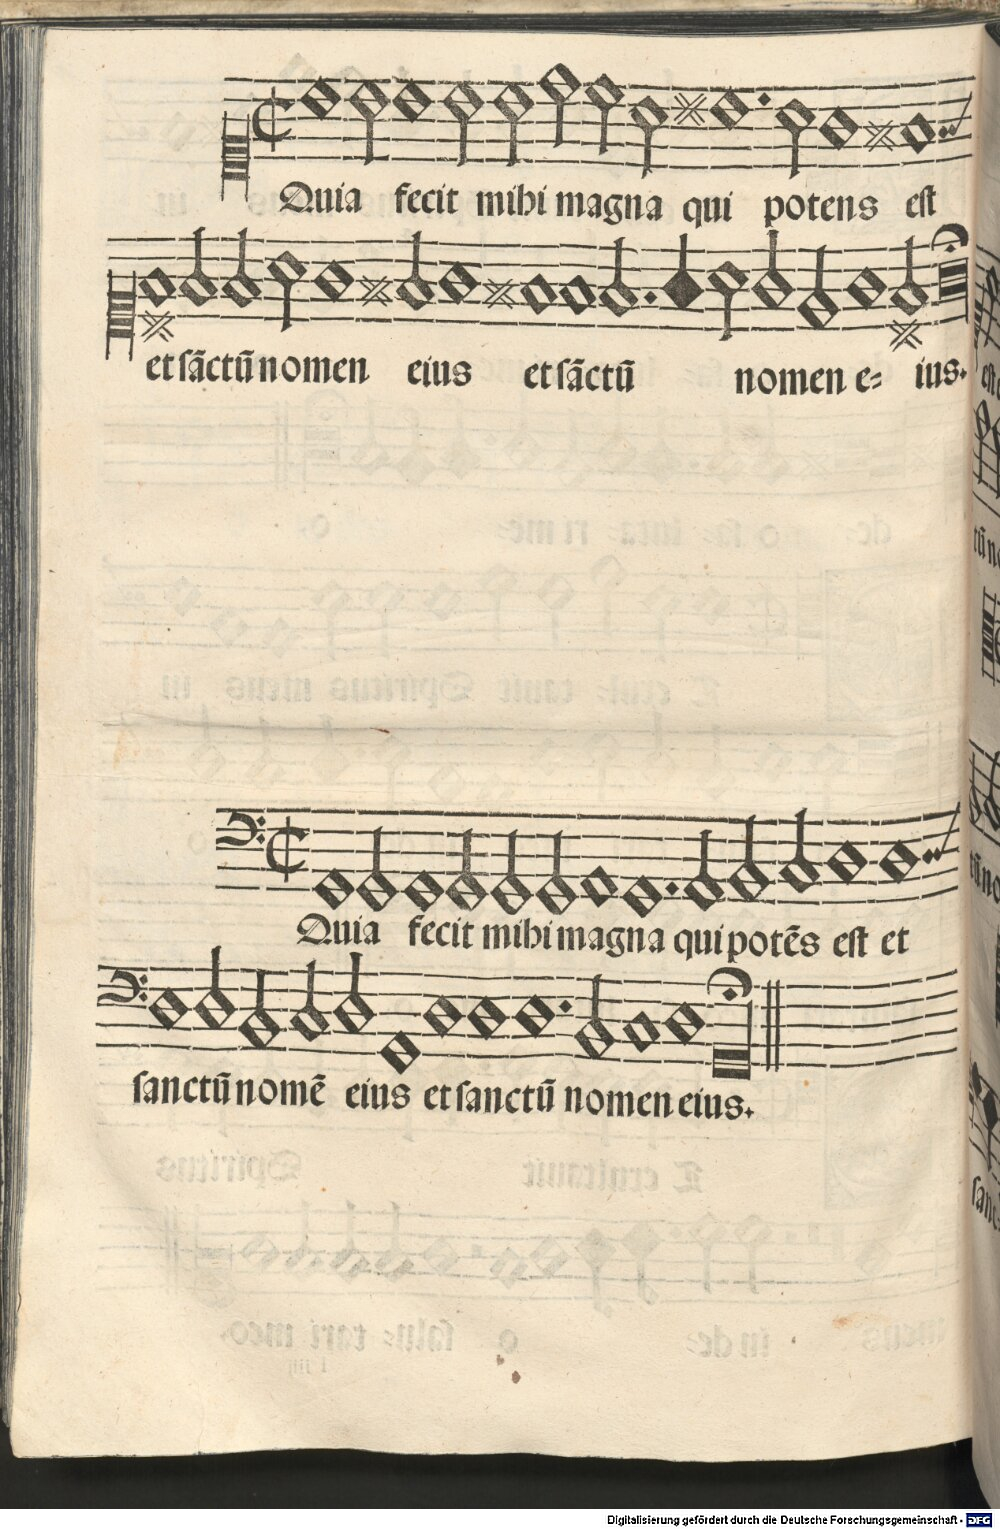 Quia fecit mihi magna qui potens est
et sãctũ nomen eius et sãctũ nomen e= ius.
Quia fecit mihi magna qui potẽs est et
sanctũ nomẽ eius et sanctũ nomen eius.
Digitalisierung gefördert durch die Deutsche Forschungsgemeinschaft - DFG